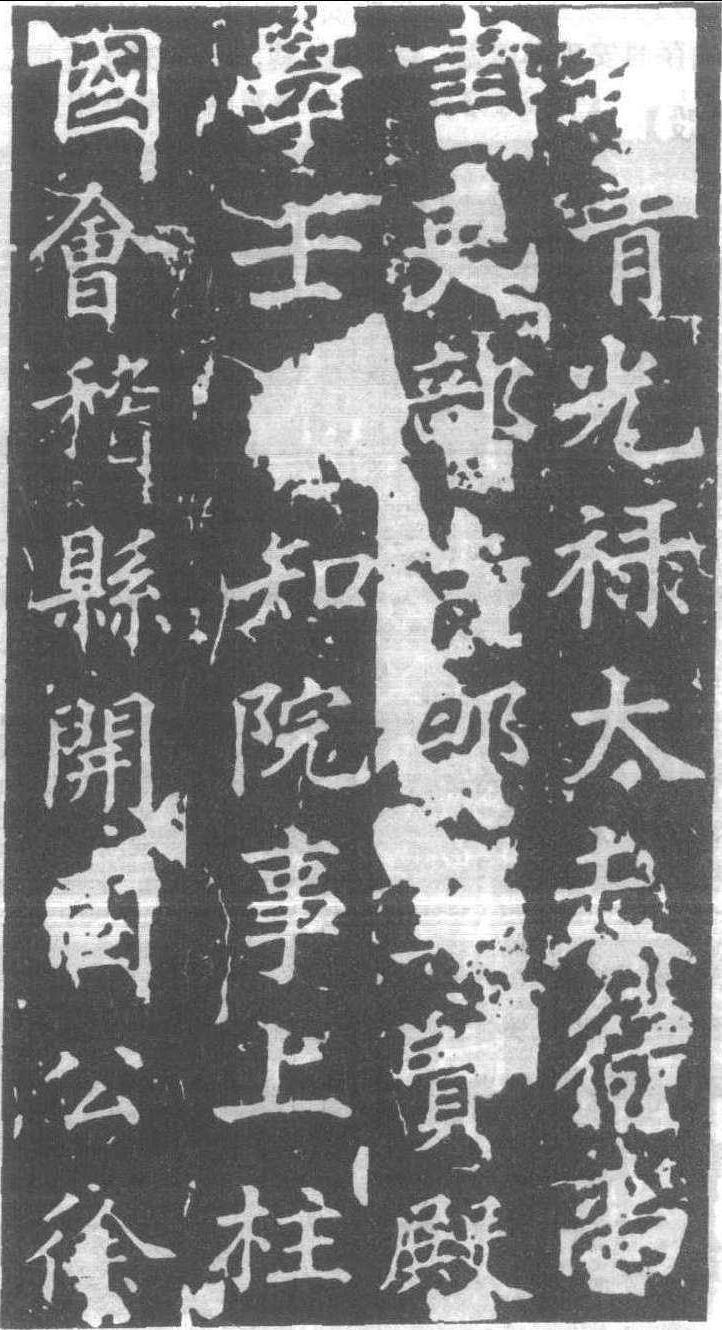 青光禄大尚
書吏部侍郎賢殿
學士知院事上柱
國會稽縣開國公徐